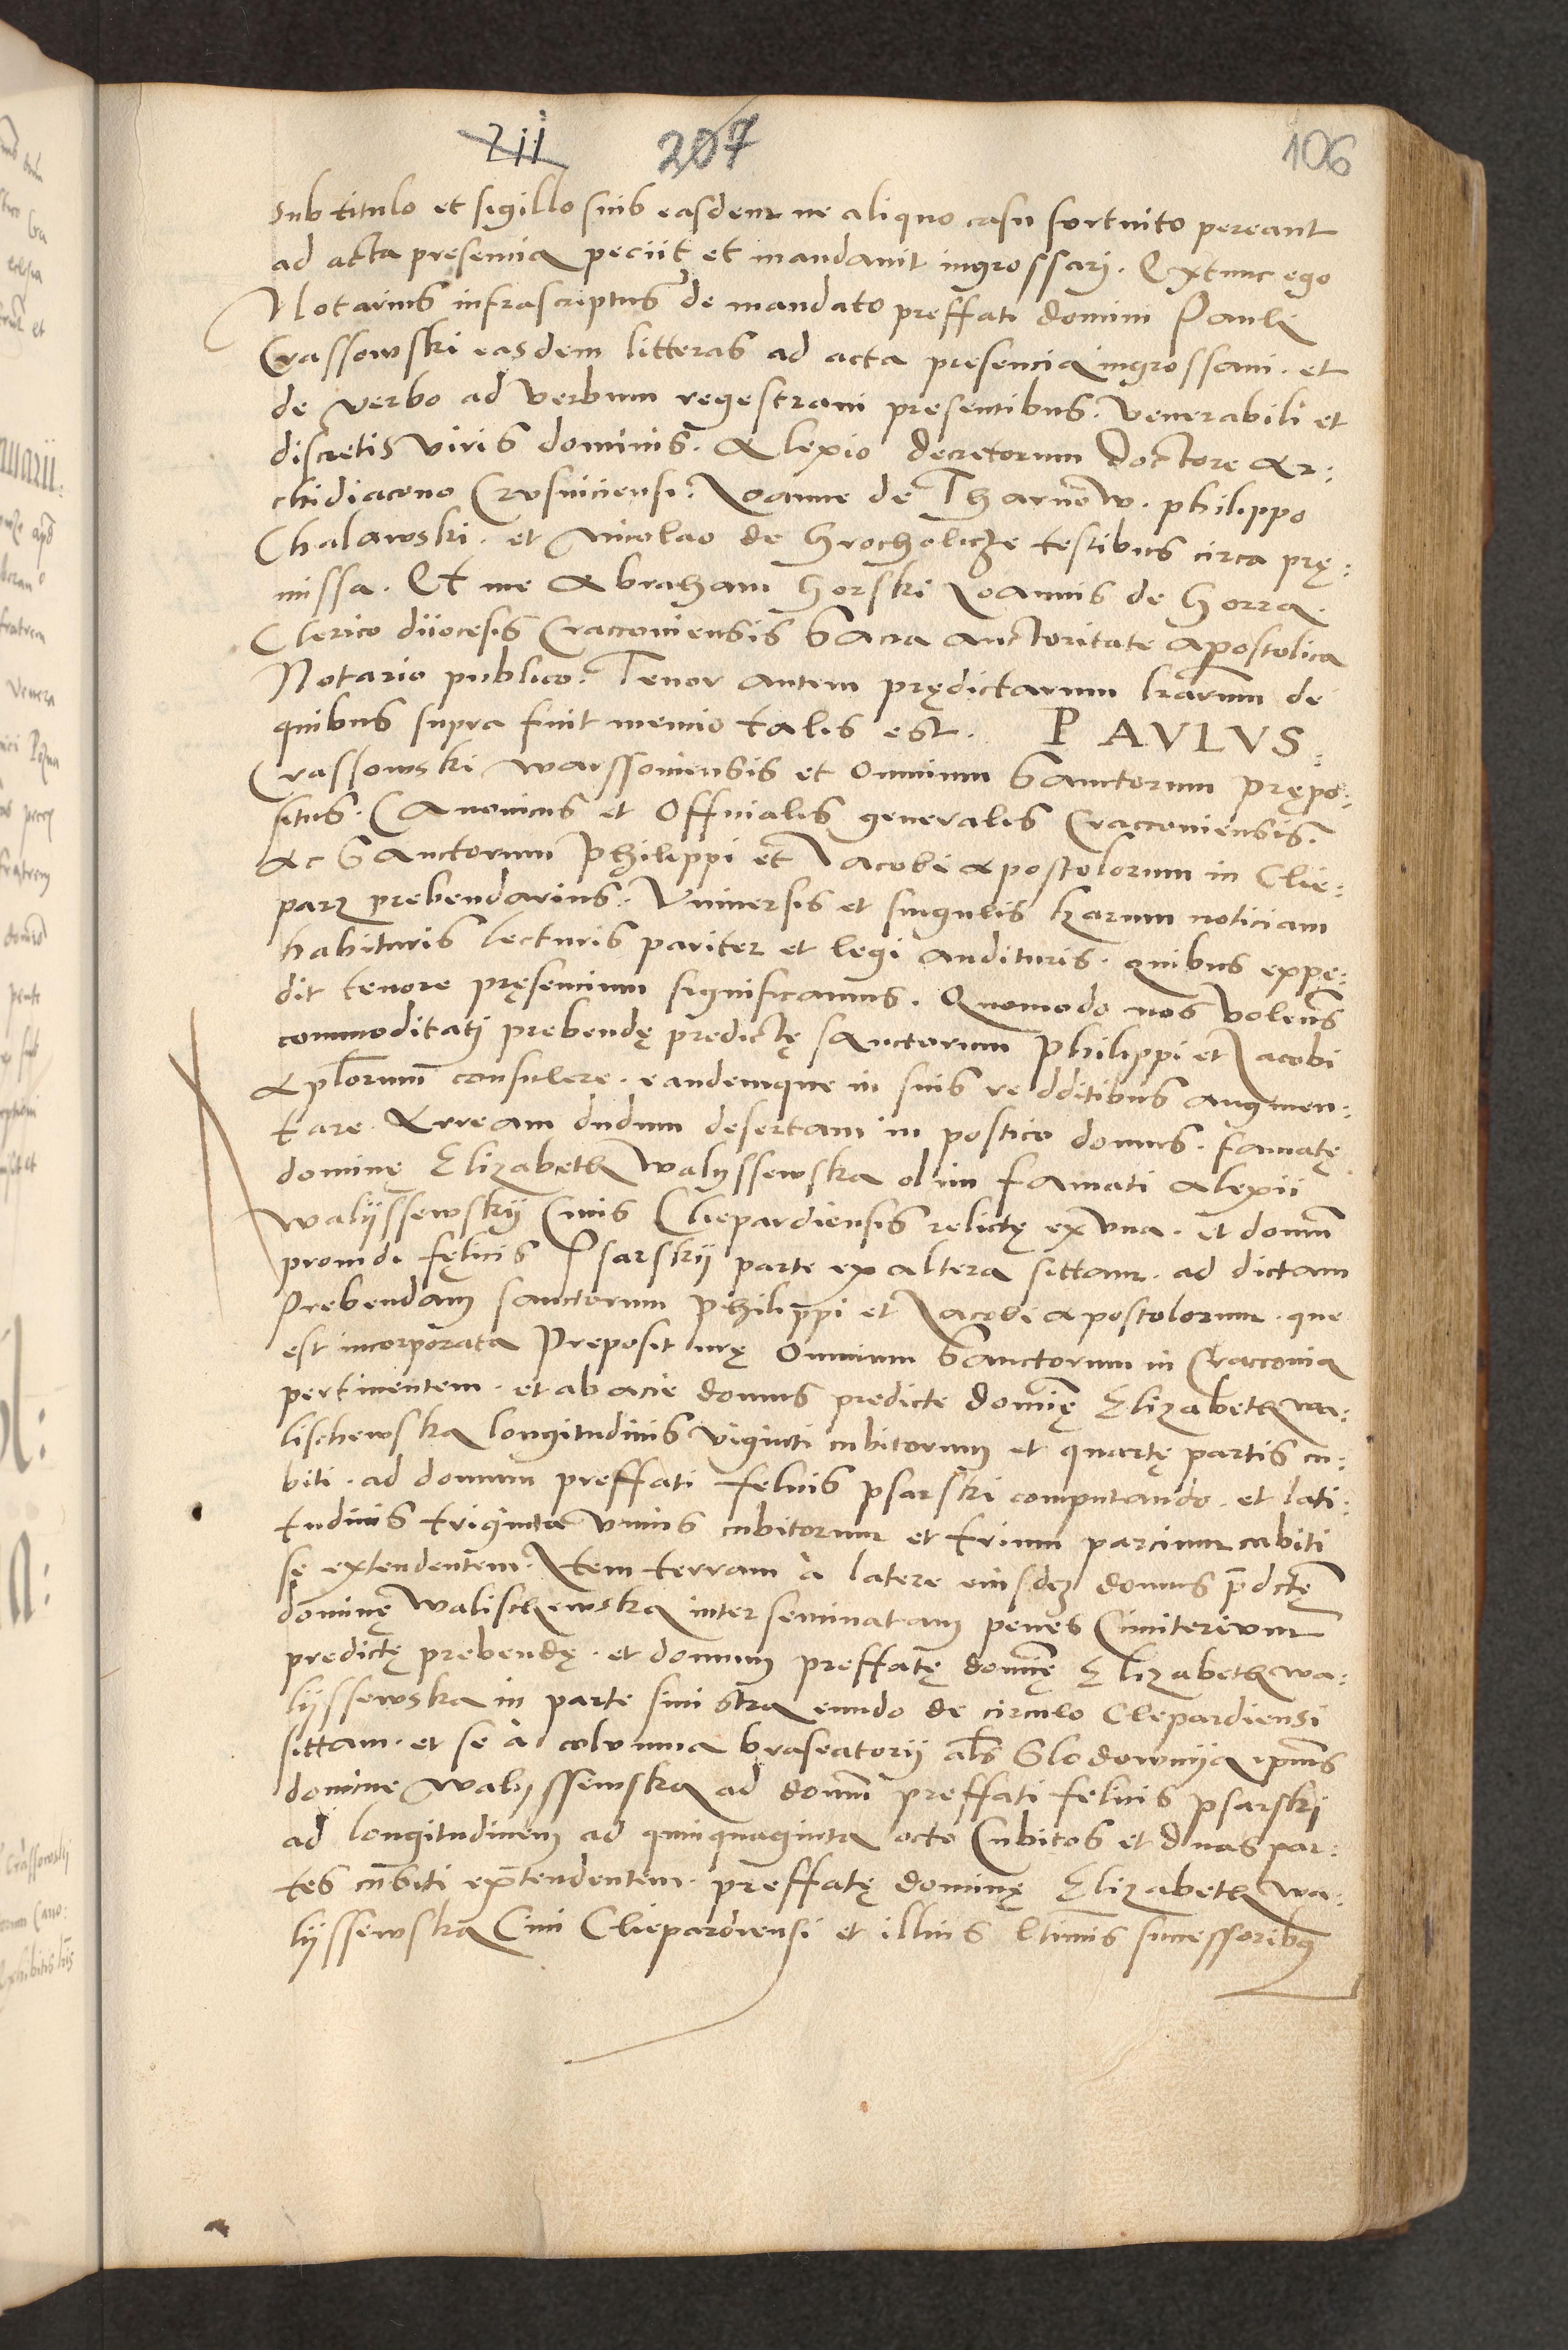 211 207 106
Sub titulo et sigillo suis easdem ne aliquo casu fortuito pereant
ad acta presencia peciit et mandavit ingrossari. Extunc ego
Notarius infrascriptus de mandato preffati domini Pauli
Crassowski easdem litteras ad acta presencia ingrossavi. et
de verbo ad verbum regestravi presentibus. venerabili et
discretis viris dominis. Alexio decretorum doctore Ar:
chidiacono Ioanne de Tharnow. philippo
Chalawski. et Nicolao de Grocholicze testibus circa prę:
missa. Et me Abraham Gorski Ioannis de Gorra.
Clerico diiocesis Cracoviensis Sacra auctoritate apostolica
Notario publico. Tenor autem prędictarum lrārum de
quibus supra fuit mencio talis est. PAVLVS
Crassowski warssoviensis et Omnium Sanctorum prępo:
situs. Canonicus et Officialis generalis Cracoviensis.
Ac Sanctorum Philippi et Iacobi Apostolorum in Clie:
parz prebendarius. Vniversis et singulis harum noticiam
habituris lecturis pariter et legi audituris. quibus expę:
dit tenore pręsencium significamus. Quomodo nos volens
commoditati prebendę predictę sanctorum Philippi et Iacobi
Aplorum consulere. eandemque in suis redditibus augmen:
tare. Arream dudum desertam in postico domus. famatę
dominę Elizabeth walyssewska olim famati Alexii
walÿssewskÿ Civis Cliepardiensis relictę ex vna. et domum
providi fęlicis Psarskÿ parte ex altera sittam. ad dictam
Prebendam sanctorum Philippi et Iacobi apostolorum. que
est incorporata Preposit urę Omnium Sanctorum in Cracovia
pertinentem. et ab acie domus predicte dominę Elizabeth wa:
lischewska longitudinis viginti cubitorum et quartę partis cu:
biti. ad domum preffati felicis psarski computando. et lati:
tudinis triginta vnius cubitorum et trium parcium cubiti
se extendentem. Item terram a latere eiusdem domus prędictę
dominę walischewska inter seminatam penes Cimiterium
predictę prebendę. et domum preffatę dominę Elizabeth wa:
lÿssewska in parte sinistra eundo de circulo Clepardiensi
sittam. et se a columna braseatorÿ als Slodownÿa ipius
domine walyssewska ad domum preffati felicis psarskÿ
ad longitudinem ad quinquaginta octo Cubitos et duas par:
tes cubiti extendentem. preffatę dominę Elizabeth wa:
lÿssewska Civi Cliepardiensi et illius ltimis successoribus